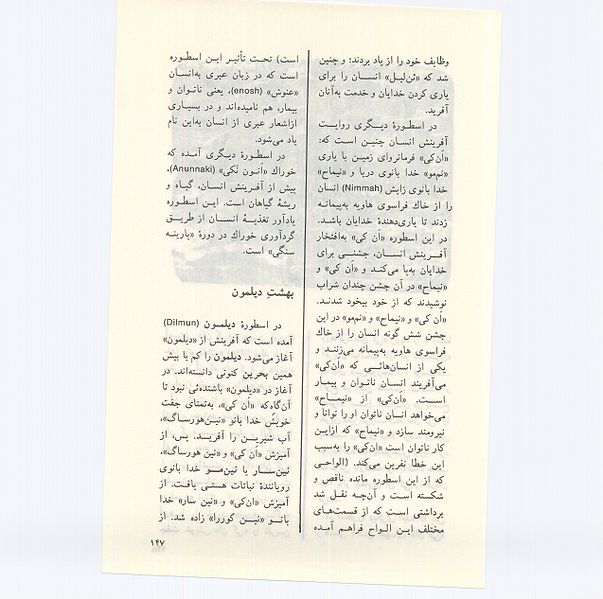 وظایف خود را از یاد بردند؛ و چنین
شد که «ئن‌لیل» انسان را برای
یاری کردن خدایان و خدمت به‌آنان
آفرید.
در اسطورهٔ دیگری روایت
آفرینش انسان چنین است که:
«اَن‌کی» فرمانروای زمین با یاری
«نم‌مو» خدا بانوی دریا و «نیماح»
(Nimmah) خدا بانوی زایش انسان
را از خاك فراسوی هاویه به‌پیمانه
زدند تا یاری‌دهندهٔ خدایان باشد.
در این اسطوره «اَن کی» به‌افتخار
آفرینش انسان، جشنی برای
خدایان به‌پا می‌کند و «اَن کی» و
«نیماح» در آن جشن چندان شراب
نوشیدند که از خود بیخود شدند.
«اَن کی» و «نیماح» و «نم‌مو» در این
جشن شش گونه انسان را از خاك
فراسوی هاویه به‌پیمانه می‌زنند و
یکی از انسان‌هائی که «اَن‌کی»
می‌آفریند انسان ناتوان و بیمار
است. «اَن‌کی» از «نیماح»
می‌خواهد انسان ناتوان او را توانا و
نیرومند سازد و «نیماح» که ازاین
کار ناتوان است «اَن‌کی» را به‌سبب
این خطا نفرین می‌کند. (الواحی
که از این اسطوره مانده ناقص و
شکسته است و آن‌چه نقل شد
برداشتی است که از قسمت‌های
مختلف این الواح فراهم آمده
است) تحت تأثیر این اسطوره
است که در زبان عبری به‌انسان
«عنوش» (enosh)، یعنی ناتوان و
بیمار، هم نامیده‌اند و در بسیاری
ازاشعار عبری از انسان به‌این نام
یاد می‌شود.
در اسطورهٔ دیگری آمده که
خوراك «انون نَکی» (Anunnaki)،
پیش از آفرینش انسان، گیاه و
ریشهٔ گیاهان است. این اسطوره
یادآور تغذیهٔ انسان از طریق
گردآوری خوراك در دورهٔ «پارینه
سنگی» است.
بهشتِ دیلمون
در اسطورهٔ دیلمون (Dilmun)
آمده است که آفرینش از «دیلمون»
آغاز می‌شود. دیلمون را کم یا بیش
همین بحرین کنونی دانسته‌اند. در
آغاز در «دیلمون» باشنده‌ئی نبود تا
آن‌گاه که «اَن کی»، به‌تمنای جفت
خویش خدا بانو «نین‌هورساگ»،
آب شیرین را آفرید. پس، از
آمیزش «اَن کی» و «نین هورساگ»،
نین‌سار یا نین‌مو خدا بانوی
رویانندهٔ نباتات هستی یافت. از
آمیزش «اَن‌کی» و «نین سار» خدا
بانو «نین کوررا» زاده شد. از
۱۴۷